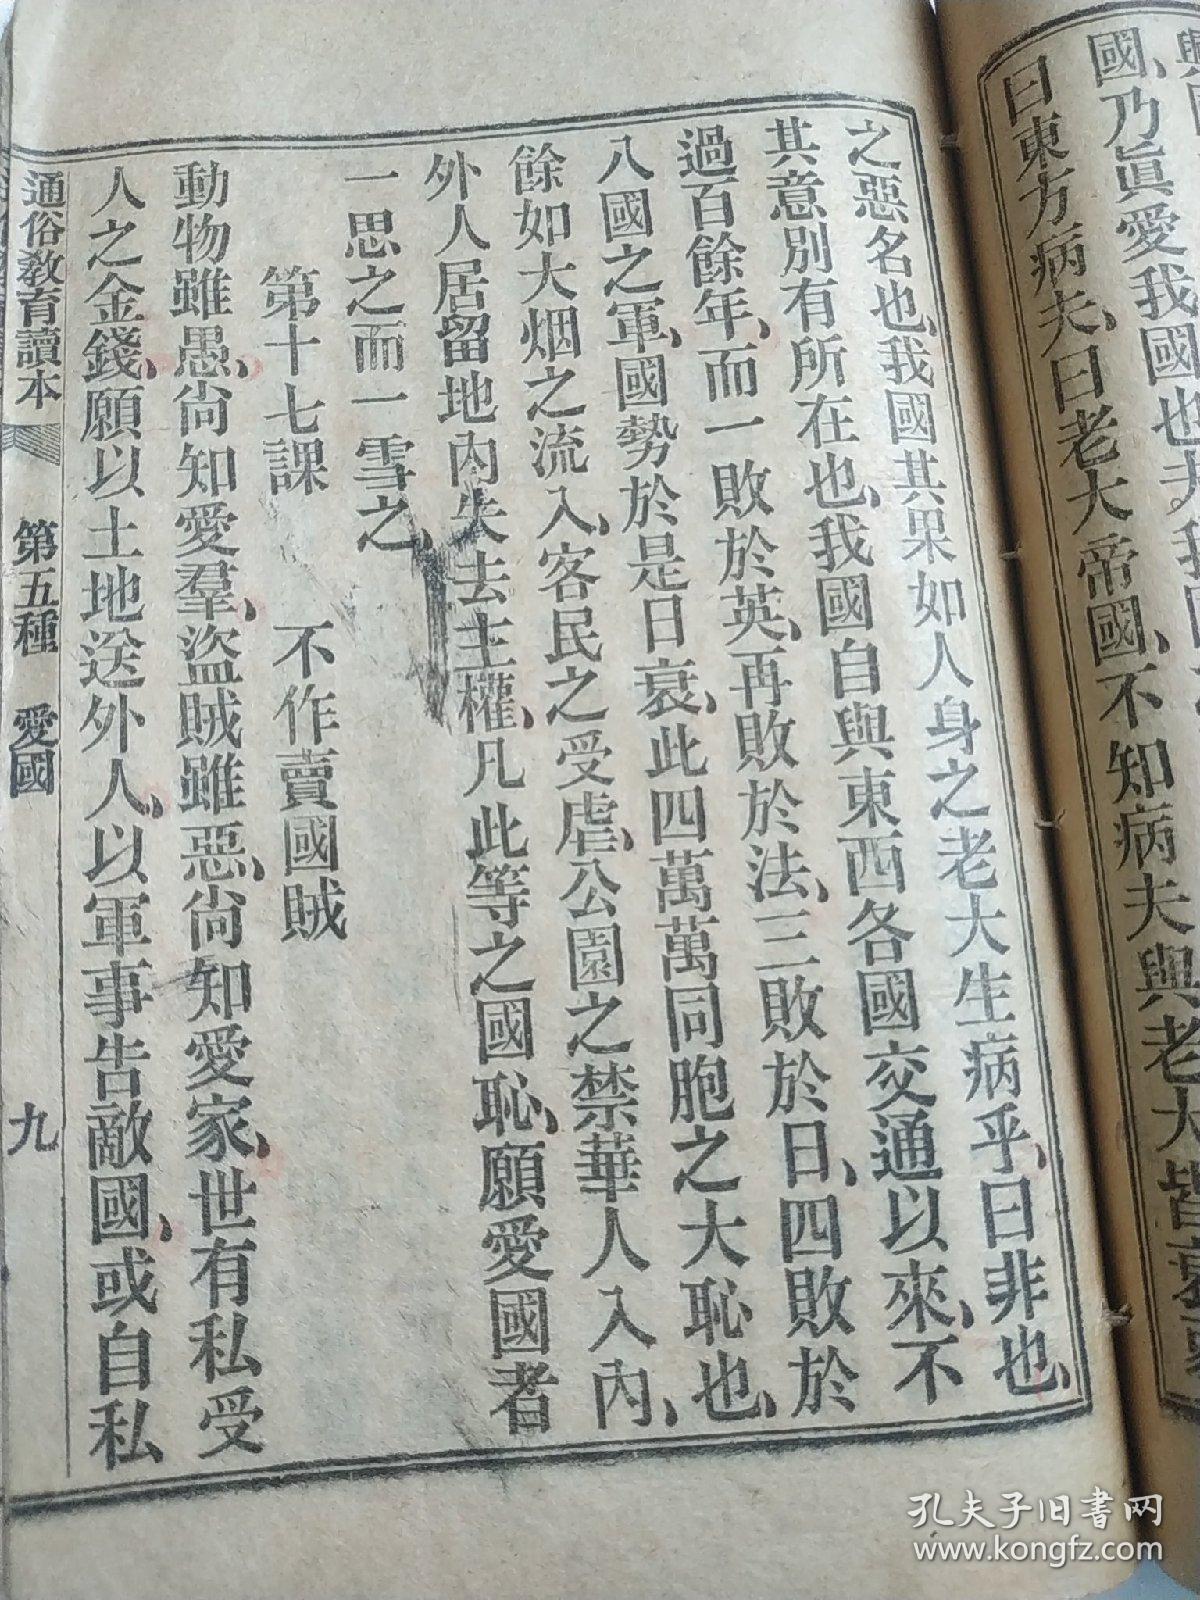 國、乃眞愛我國也、夫我
曰東方病夫、曰老大帝國、不知病夫與老大皆
之惡名也、我國其果如人身之老大生病乎、曰非也、
其意別有所在也、我國自與東西各國交通以來、不
過百餘年、而一敗於英、再敗於法、三敗於日、四敗於
八國之軍、國勢於是日衰、此四萬萬同胞之大恥也、
餘如大烟之流入、客民之受虐、公園之禁華人入內、
外人居留地內失去主權、凡此等之國恥、願愛國者
一思之而一雪之、
第十七課 不作賣國賊
動物雖愚、尙知愛羣、盜賊雖惡、尙知愛家、世有私受
人之金錢、願以土地送外人、以軍事告敵國、或自私
通俗敎育讀本 第五種 愛國 九
孔夫子旧书网
www.kongfz.com